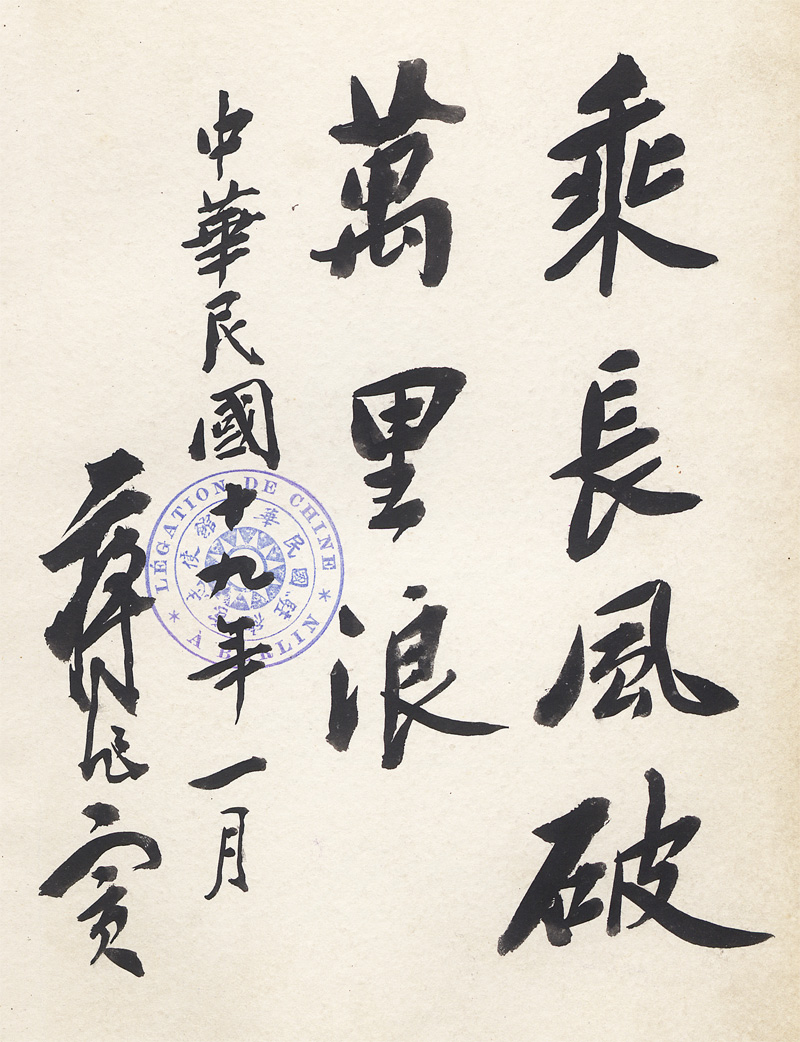 乘長風破
萬里浪
中華民國十九年一月
蔣作賓
LÉGATION DE CHINE
* À BERLIN *
華民國駐
使館